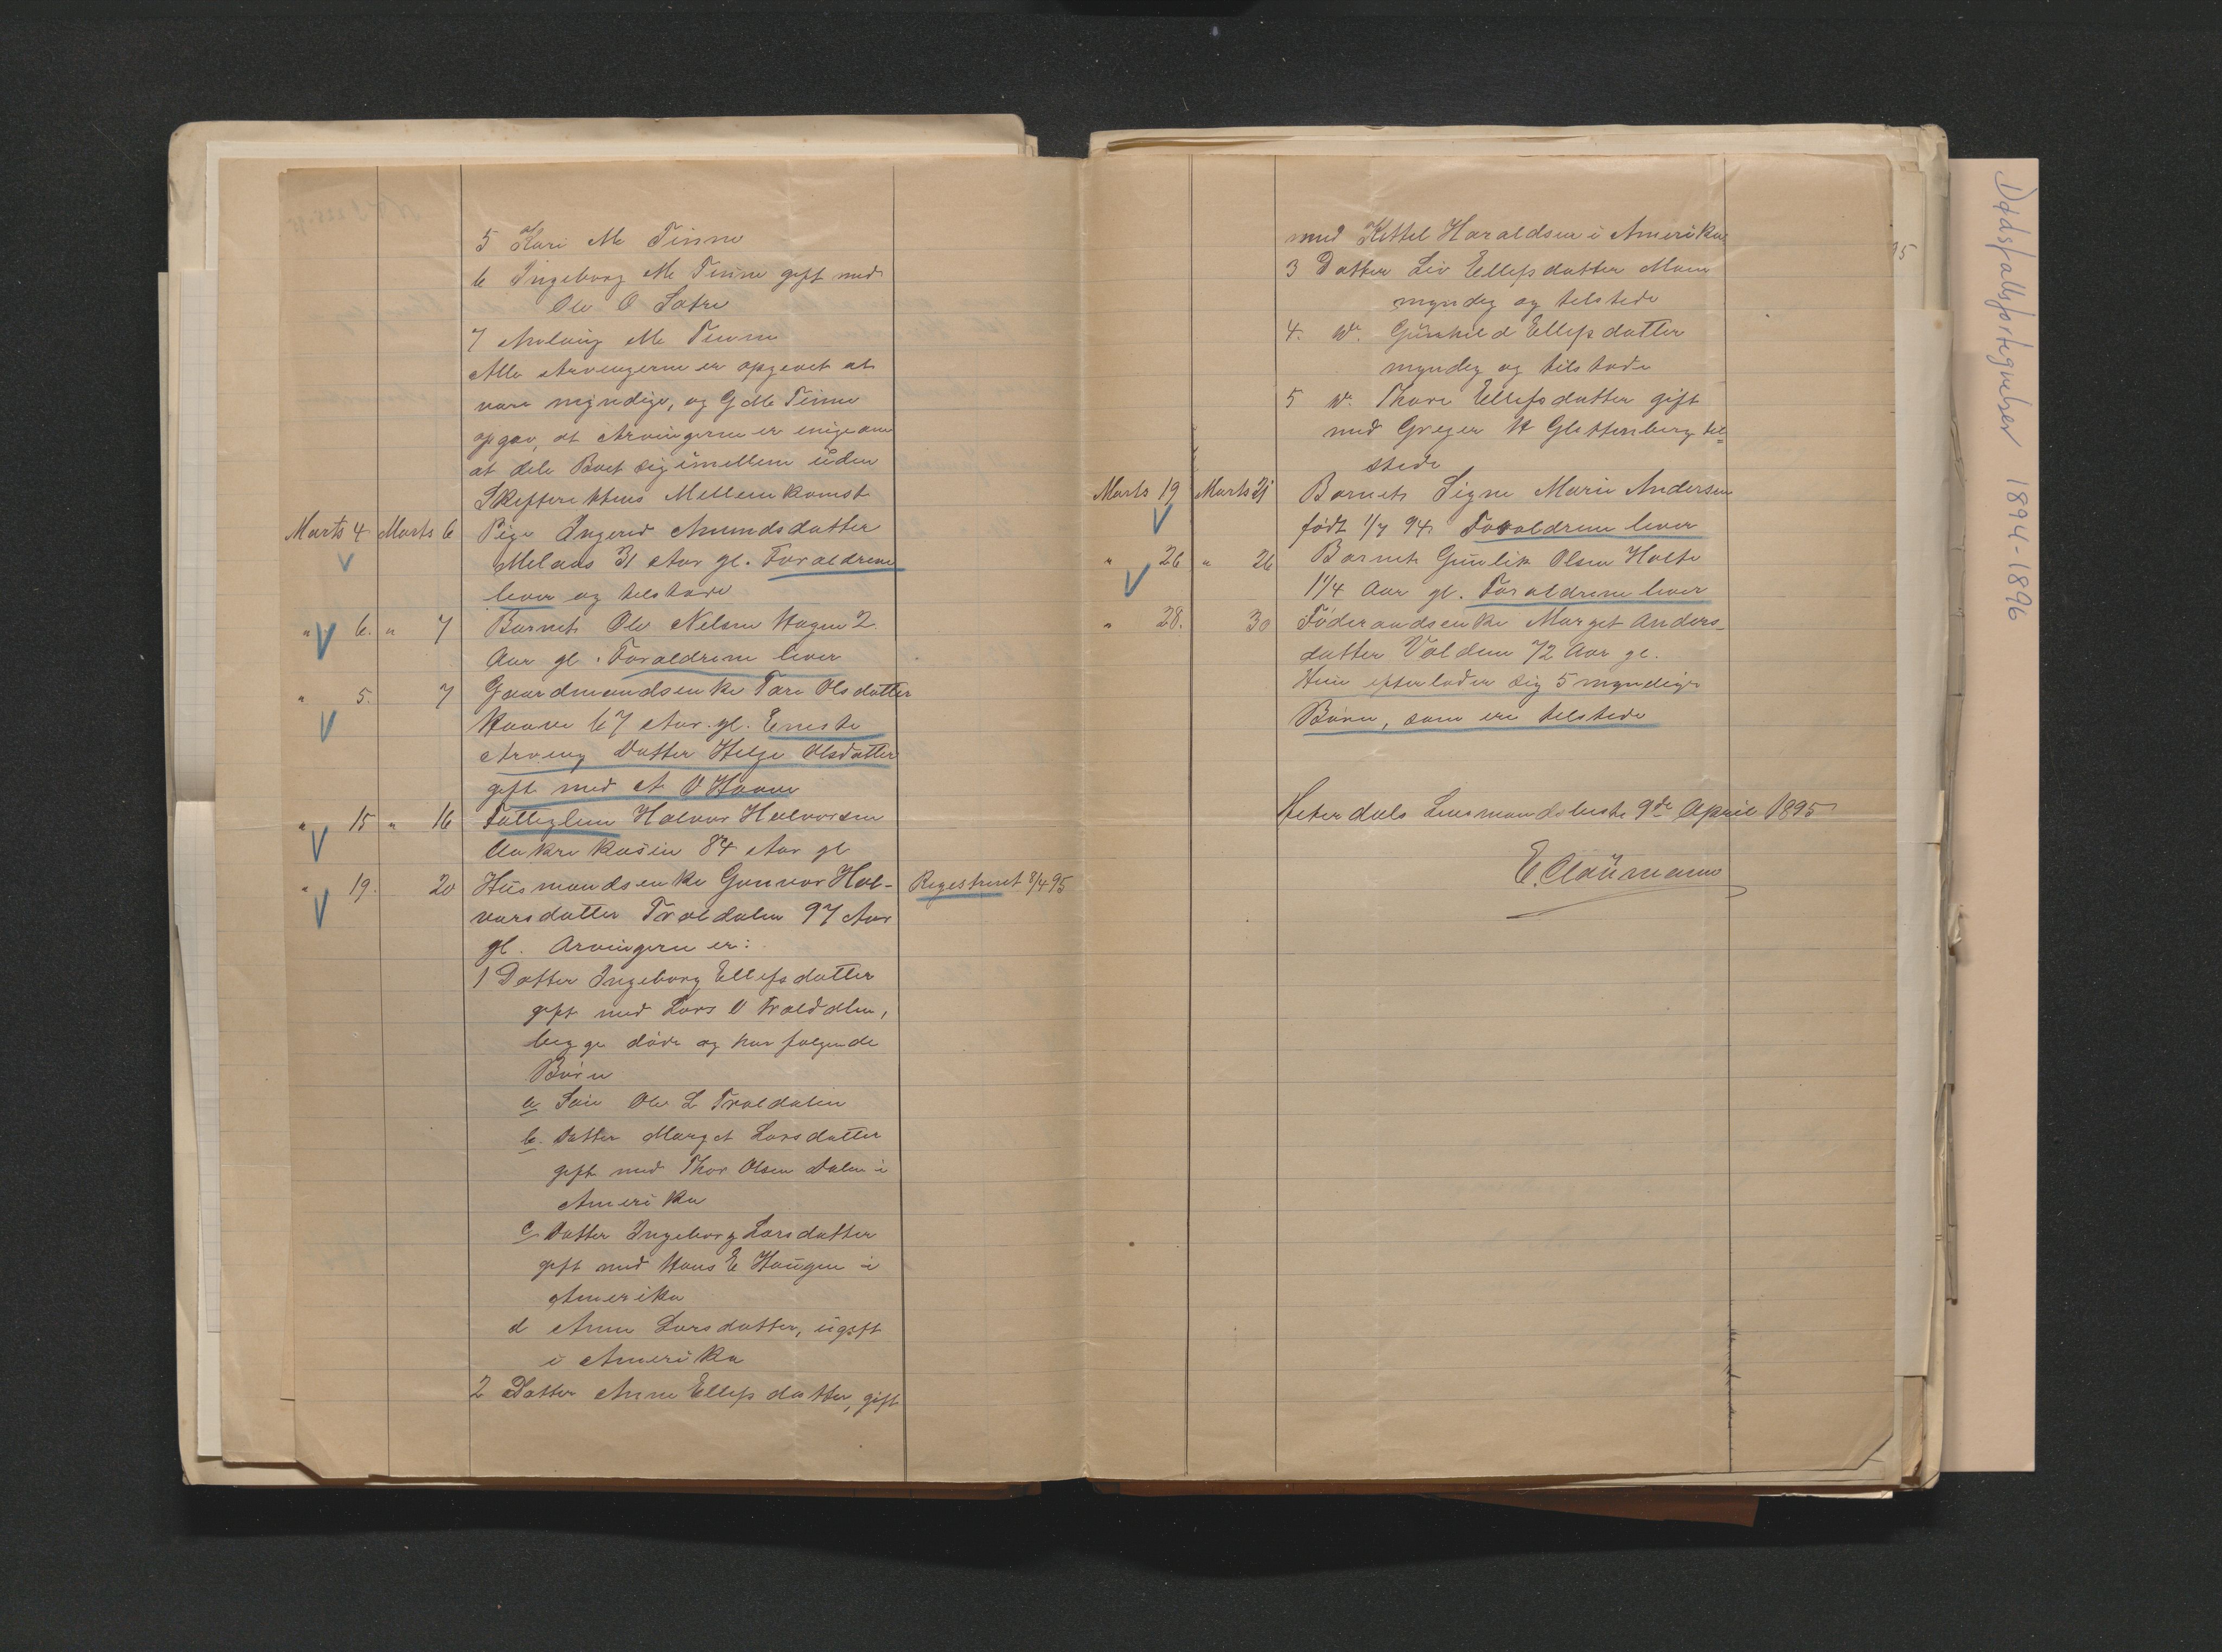 5 Kari M Tinne
6 Ingeborg M Tinne gift med
Ole O Sætre
7 Aslaug M Tinne
Alle Arvingerne er opgivet at
være myndige, og G M Tinne
opgav, at Arvingerne er enige om
at dele Boet sig imellem uden
Skifterettens Mellemkomst
Marts 4 Marts 6 Pige Ingerid Amundsdatter
Melaas 31 Aar gl. Forældrene
lever og tilstede
" 6. " 7 Barnet Ole Nelsen Hagen 2
Aar gl. Forældrene lever
" 5. 7 Gaardmandsenke Tare Olsdatter
Haave 67 Aar gl. Eneste
Arving Datter Helge Olsdatter
gift med A O Haave
" 15 " 16 Fattiglem Halvor Halvorsen
84 Aar gl
" 19. 20 Husmandsenke Gunvor Hal-
vorsdatter Troldalen 97 Aar
gl. Arvingerne er:
Registreret 8/4 95
1 Datter Ingeborg Ellefsdatter
gift med Lars O Trolddalen,
begge døde og har følgende
Børn
a Søn Ole L Troldalen
b. Datter Marget Larsdatter
gift med Thor Olsen Dalen i
Amerika
c Datter Ingeborg Larsdatter
gift med Hans E Haugen i
Amerika
d Anne Larsdatter, ugift
i Amerika
2 Datter Anne Ellefsdatter, gift
med Kittel Haraldsen i Amerika
3 Datter Liv Ellefsdatter Moen
myndig og tilstede
4. do. Gunhild Ellefsdatter
myndig og tilstede
5 do. Thore Ellefsdatter gift
med Greger H Glittenberg til=
stede
Marts 19 Marts 21 Barnet Signe Marie Andersen
født 1/7 94 Forældrene lever
" 26 " 26 Barnet Gunlik Olsen Holte
1 1/4 Aar gl. Forældrene lever
" 28. 30 Føderaadsenke Marget Anders-
datter Volden 72 Aar gl.
Hun efterlader sig 5 myndige
Børn, som ere tilstede
Hiterdals Lensmandsbestr 9de April 1895
E. Claumann
Dødsfallsfortegnelser 1894-1896